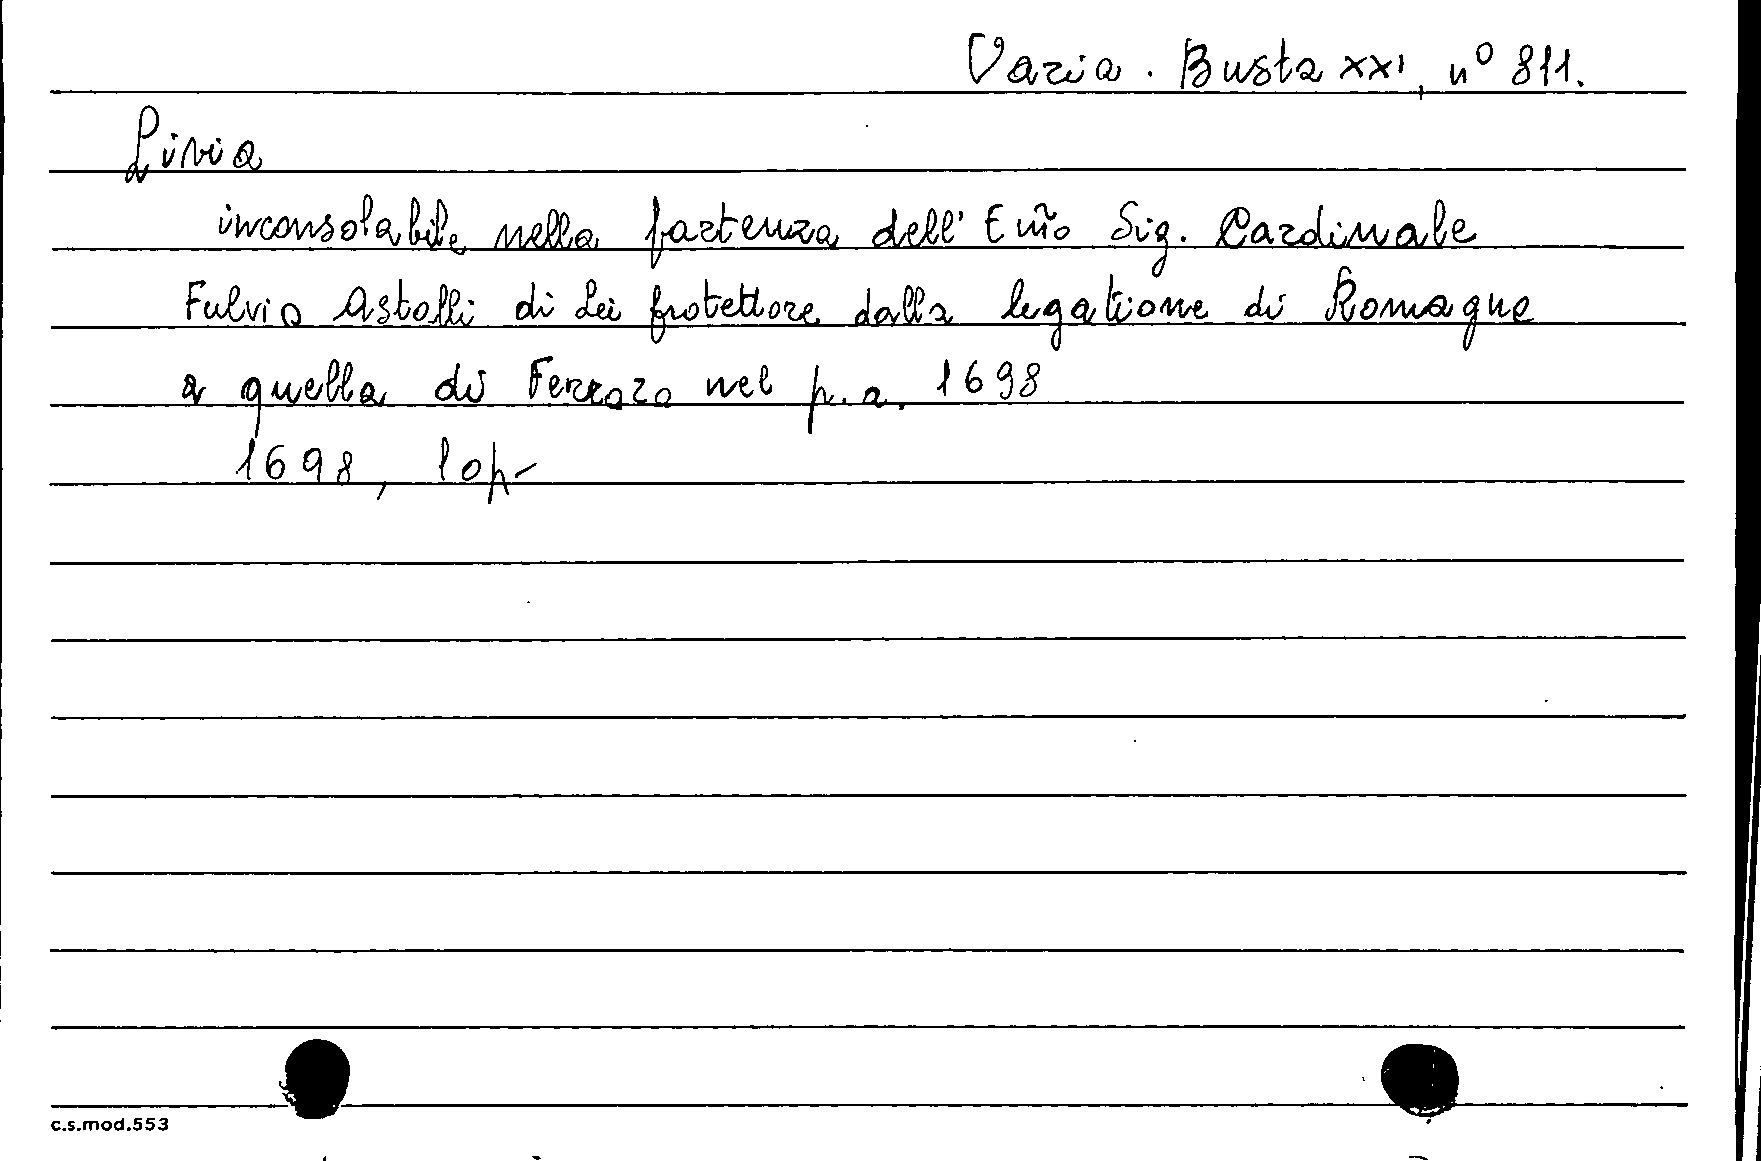 Varia. Busta XXI, n° 811.
Livia
inconsolabile nella partenza dell'Em̃o Sig. Cardinale
Fulvio Astalli di Lei protettore dalla legatione di Romagna
a quella di Ferrara nel p.a. 1698
1698, 10p
c.s.mod.553